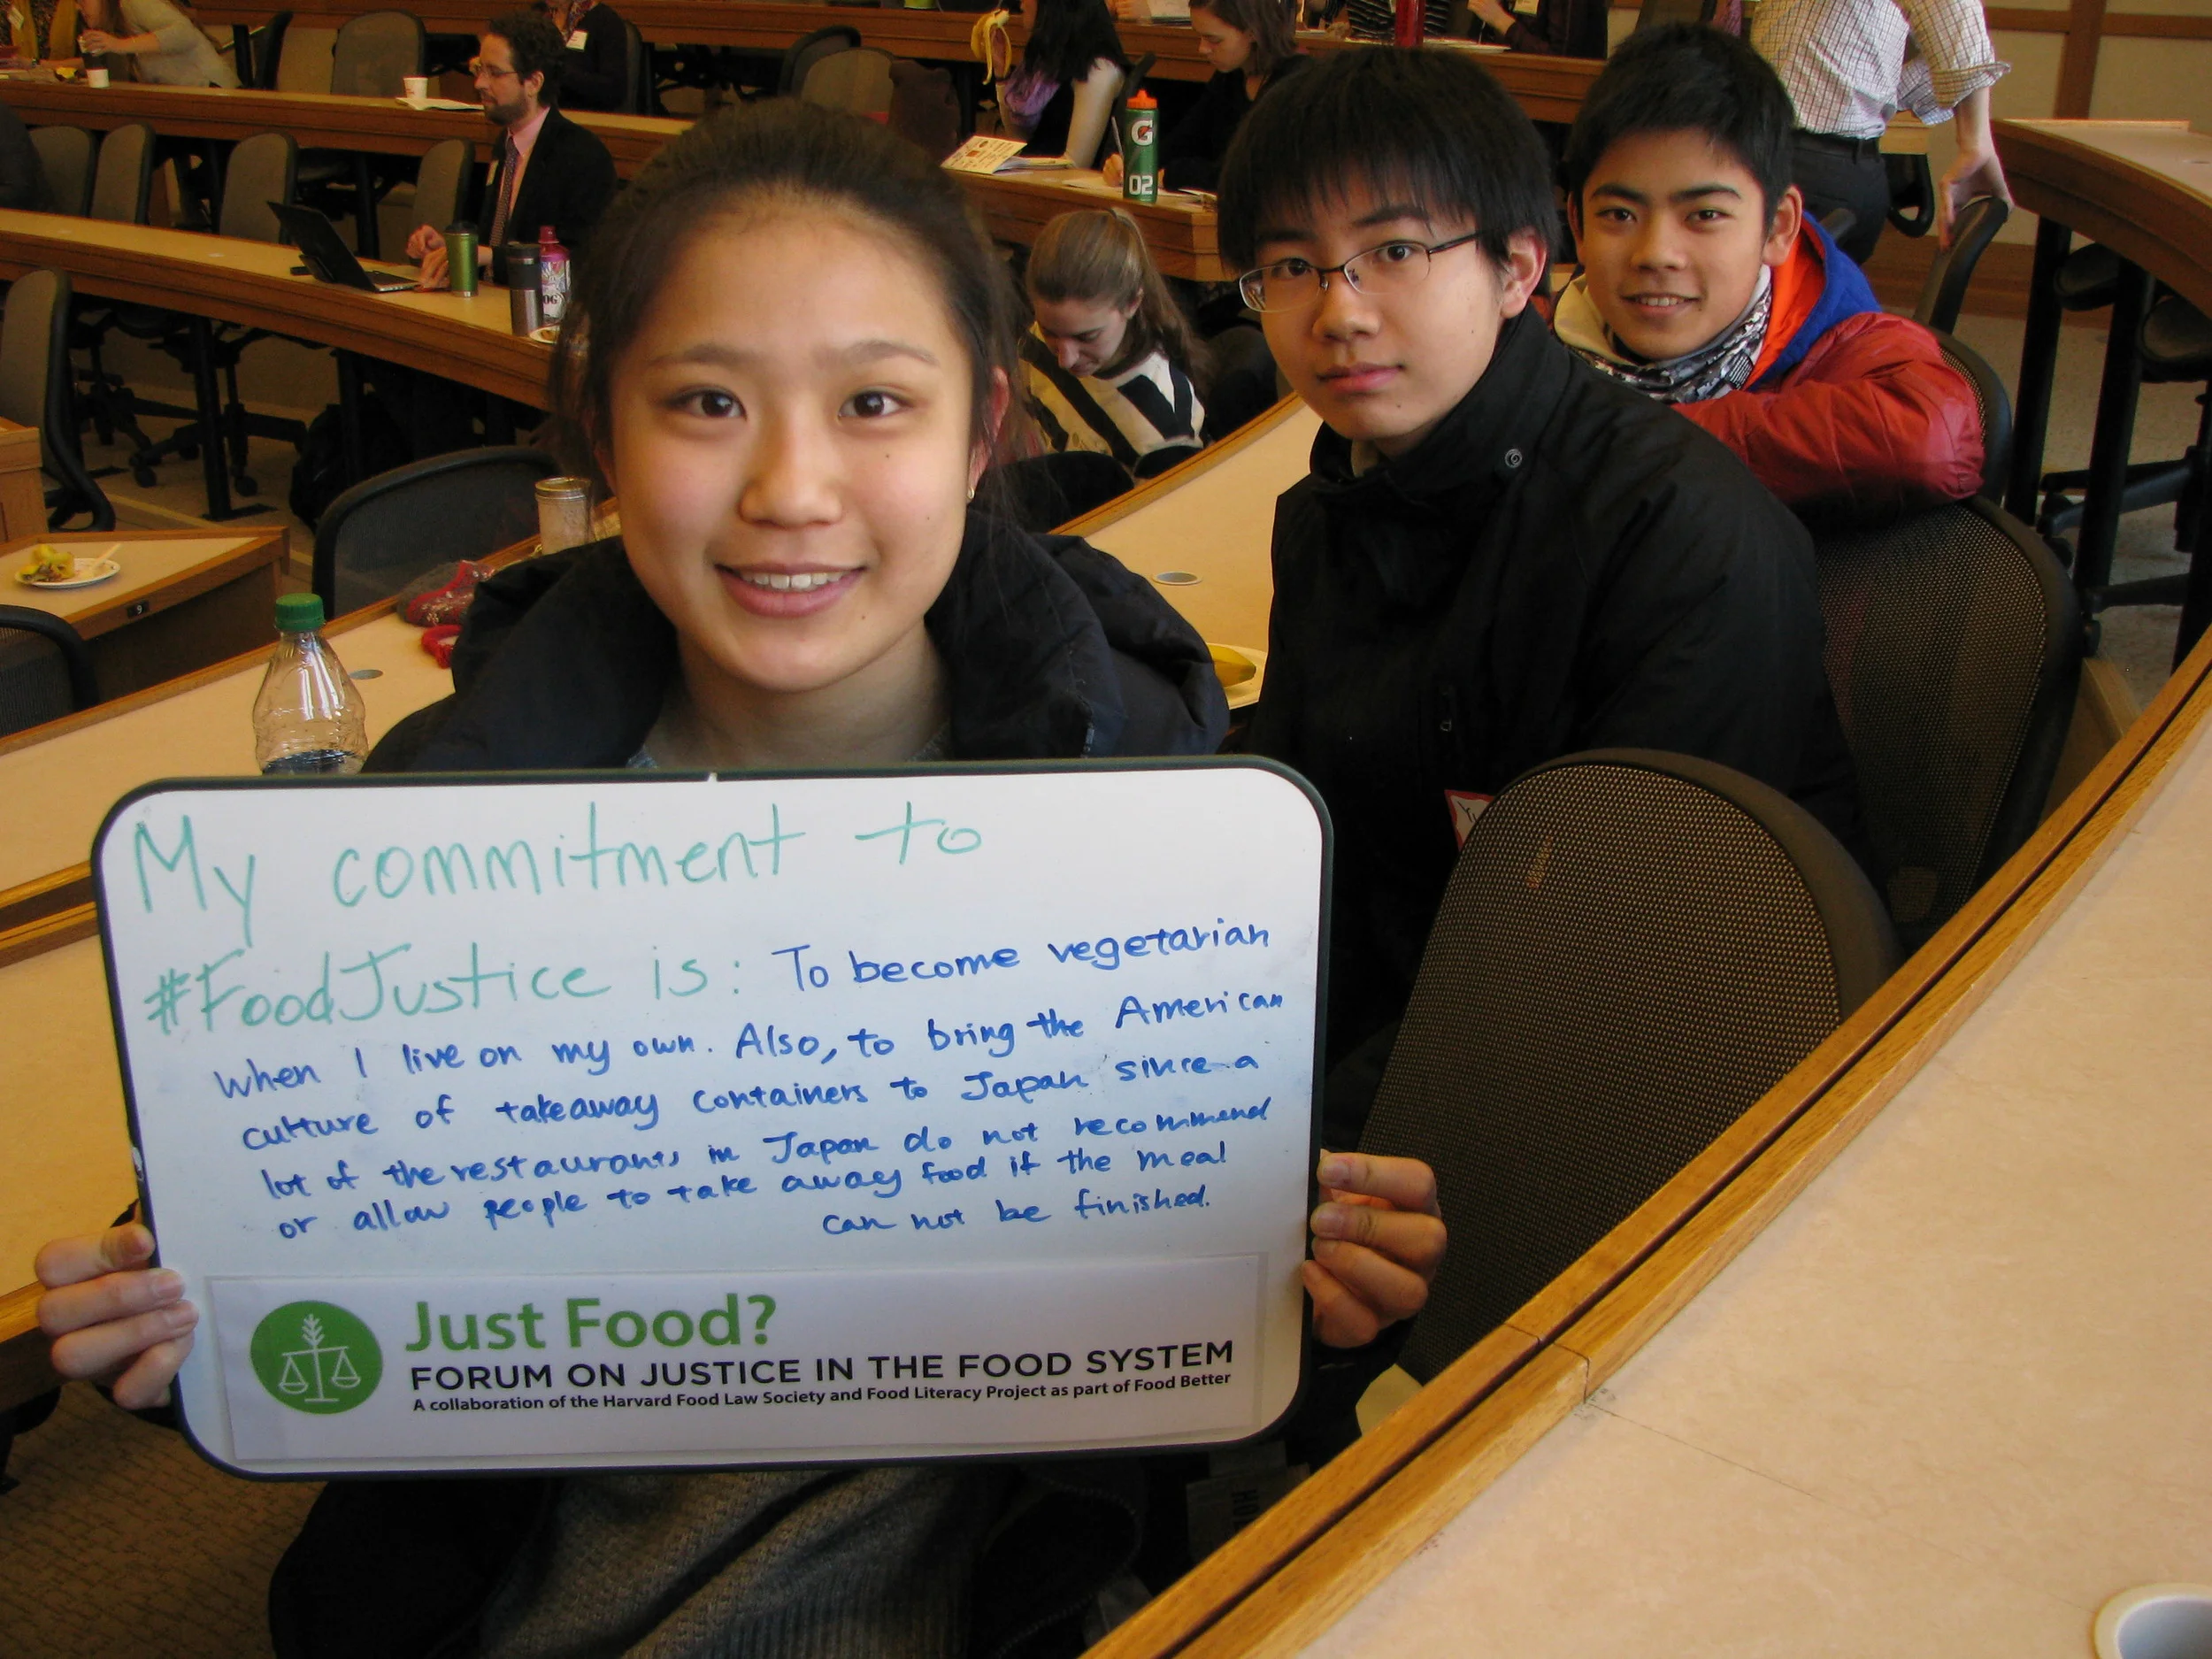 My commitment to
#FoodJustice is: To become vegetarian
when I live on my own. Also, to bring the American
culture of takeaway containers to Japan since a
lot of the restaurants in Japan do not recommend
or allow people to take away food if the meal
can not be finished.
Just Food?
FORUM ON JUSTICE IN THE FOOD SYSTEM
A collaboration of the Harvard Food Law Society and Food Literacy Project as part of Food Better
G
02
9